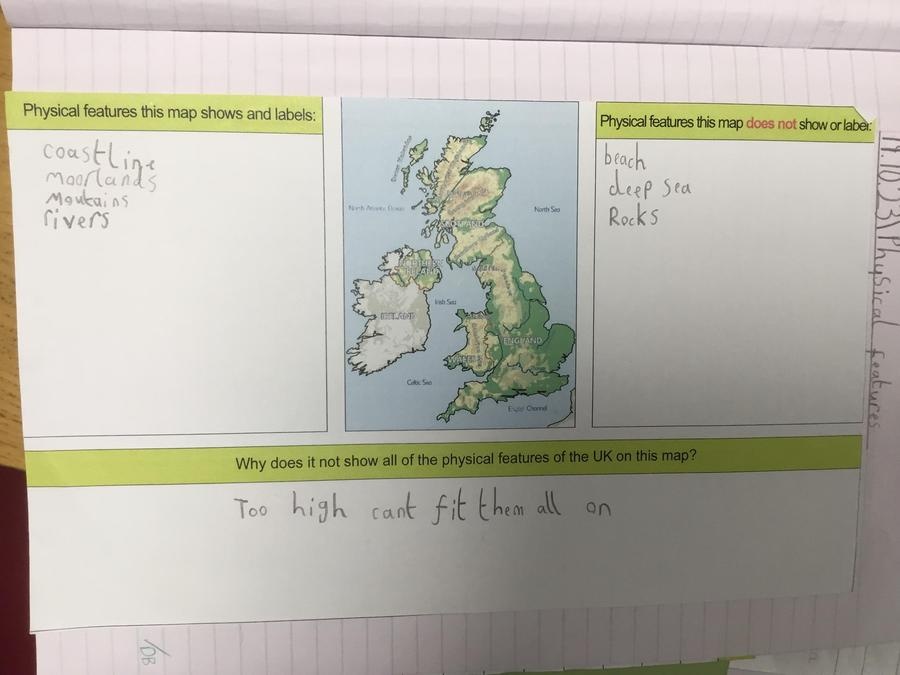 Physical features this map shows and labels:
coastline
moorlands
Mountains
rivers
North Atlantic Ocean
North Sea
SCOTLAND
NORTHERN
IRELAND
Irish Sea
IRELAND
ENGLAND
WALES
Celtic Sea
English Channel
Physical features this map does not show or label:
beach
deep sea
Rocks
Why does it not show all of the physical features of the UK on this map?
Too high cant fit them all on
19.10.23 Physical features
/DB